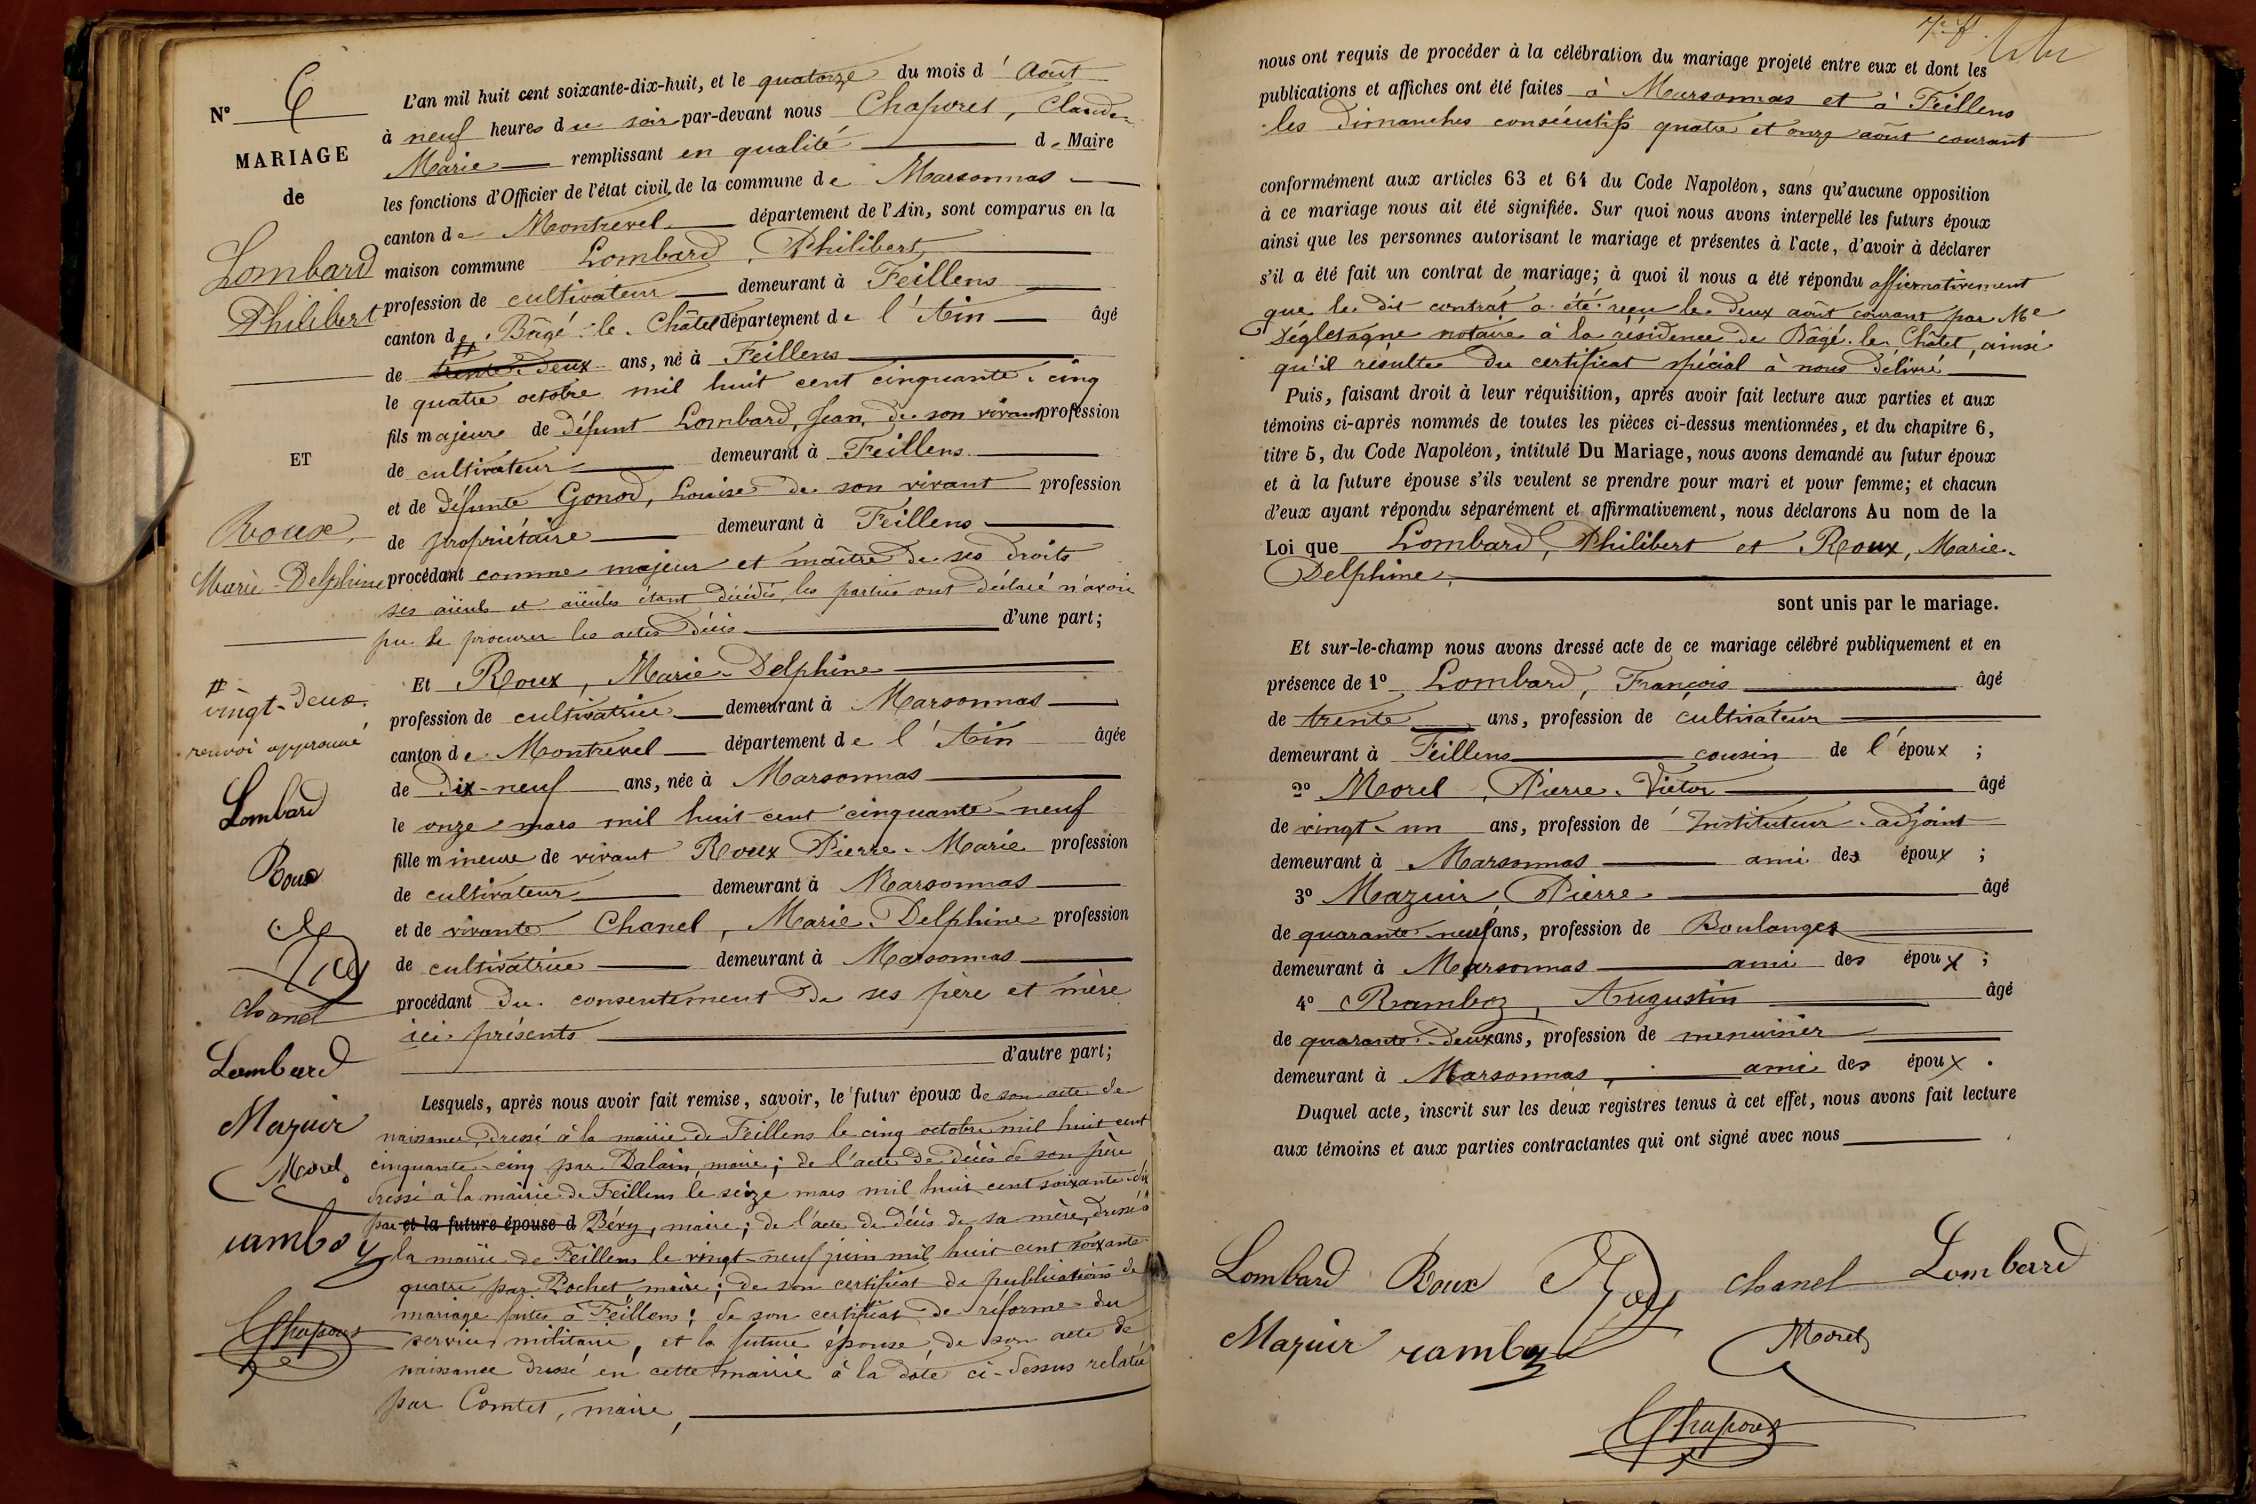 N° 6
MARIAGE
de
Lombard
Philibert
ET
Roux,
Marie-Delphine
vingt-deux.
renvoi approuvé
Lombard
Roux
chanel
Lombard
Mazuir
Morel
ramboz
Chapoux
L'an mil huit cent soixante-dix-huit, et le quatorze du mois d'Août
à neuf heures du soir par-devant nous Claude-
Marie remplissant en qualité de Maire
les fonctions d'Officier de l'état civil de la commune de Marsonnas
canton de Montrevel département de l'Ain, sont comparus en la
maison commune Lombard, Philibert
profession de cultivateur demeurant à Feillens
canton de Bâgé-le-Châtel département de l'Ain âgé
de trente-deux ans, né à Feillens
le quatre octobre mil huit cent cinquante-cinq
fils majeur de défunt Lombard, Jean, de son vivant profession
de cultivateur demeurant à Feillens
et de défunte Gonod, Louise de son vivant profession
de propriétaire demeurant à Feillens
procédant comme majeur et maître de ses droits
ses aïeuls et aïeules étant décédés, les parties ont déclaré n'avoir
pu se procurer les actes décès d'une part;
Et Roux, Marie-Delphine
profession de cultivatrice demeurant à Marsonnas
canton de Montrevel département de l'Ain âgée
de dix-neuf ans, née à Marsonnas
le onze mars mil huit cent cinquante-neuf
fille mineure de vivant Roux Pierre-Marie profession
de cultivateur demeurant à Marsonnas
et de vivante Chanel, Marie-Delphine profession
de cultivatrice demeurant à Marsonnas
procédant du consentement de ses père et mère
ici présents
d'autre part;
Lesquels, après nous avoir fait remise, savoir, le futur époux de son acte de
naissance, dressé à la mairie de Feillens le cinq octobre mil huit cent
cinquante-cinq par Dalain, maire; de l'acte de décès de son père
dressé à la mairie de Feillens le seize mars mil huit cent soixante-dix
par et la future épouse d Béry, maire; de l'acte de décès de sa mère, dressé à
la mairie de Feillens le vingt-neuf juin mil huit cent soixante-
quatre par Pochet, maire; de son certificat de publications de
mariage faites à Feillens; de son certificat de réforme du
service militaire, et la future épouse, de son acte de
naissance dressé en cette mairie à la date ci-dessus relatée
par Comtet, maire,
nous ont requis de procéder à la célébration du mariage projeté entre eux et dont les
publications et affiches ont été faites à Marsonnas et à Feillens
les dimanches consécutifs quatre et onze août courant
conformément aux articles 63 et 64 du Code Napoléon, sans qu'aucune opposition
à ce mariage nous ait été signifiée. Sur quoi nous avons interpellé les futurs époux
ainsi que les personnes autorisant le mariage et présentes à l'acte, d'avoir à déclarer
s'il a été fait un contrat de mariage; à quoi il nous a été répondu affirmativement
que le dit contrat a été reçu le deux août courant par Me
notaire à la résidence de Bâgé-le-Châtel, ainsi
qu'il résulte du certificat spécial à nous délivré
Puis, faisant droit à leur réquisition, après avoir fait lecture aux parties et aux
témoins ci-après nommés de toutes les pièces ci-dessus mentionnées, et du chapitre 6,
titre 5, du Code Napoléon, intitulé Du Mariage, nous avons demandé au futur époux
et à la future épouse s'ils veulent se prendre pour mari et pour femme; et chacun
d'eux ayant répondu séparément et affirmativement, nous déclarons Au nom de la
Loi que Lombard, Philibert et Roux, Marie-
Delphine,
sont unis par le mariage.
Et sur-le-champ nous avons dressé acte de ce mariage célébré publiquement et en
présence de 1° Lombard, François âgé
de trente ans, profession de cultivateur
demeurant à Feillens cousin de l'époux ;
2° Morel, Pierre-Victor âgé
de vingt-un ans, profession de Instituteur-adjoint
demeurant à Marsonnas ami des époux ;
3° Mazuir, Pierre âgé
de quarante-neuf ans, profession de Boulanger
demeurant à Marsonnas ami des époux ;
4° Ramboz, Augustin âgé
de quarante-deux ans, profession de menuisier
demeurant à Marsonnas, ami des époux .
Duquel acte, inscrit sur les deux registres tenus à cet effet, nous avons fait lecture
aux témoins et aux parties contractantes qui ont signé avec nous
Lombard Roux chanel Lombard
Mazuir ramboz Morel